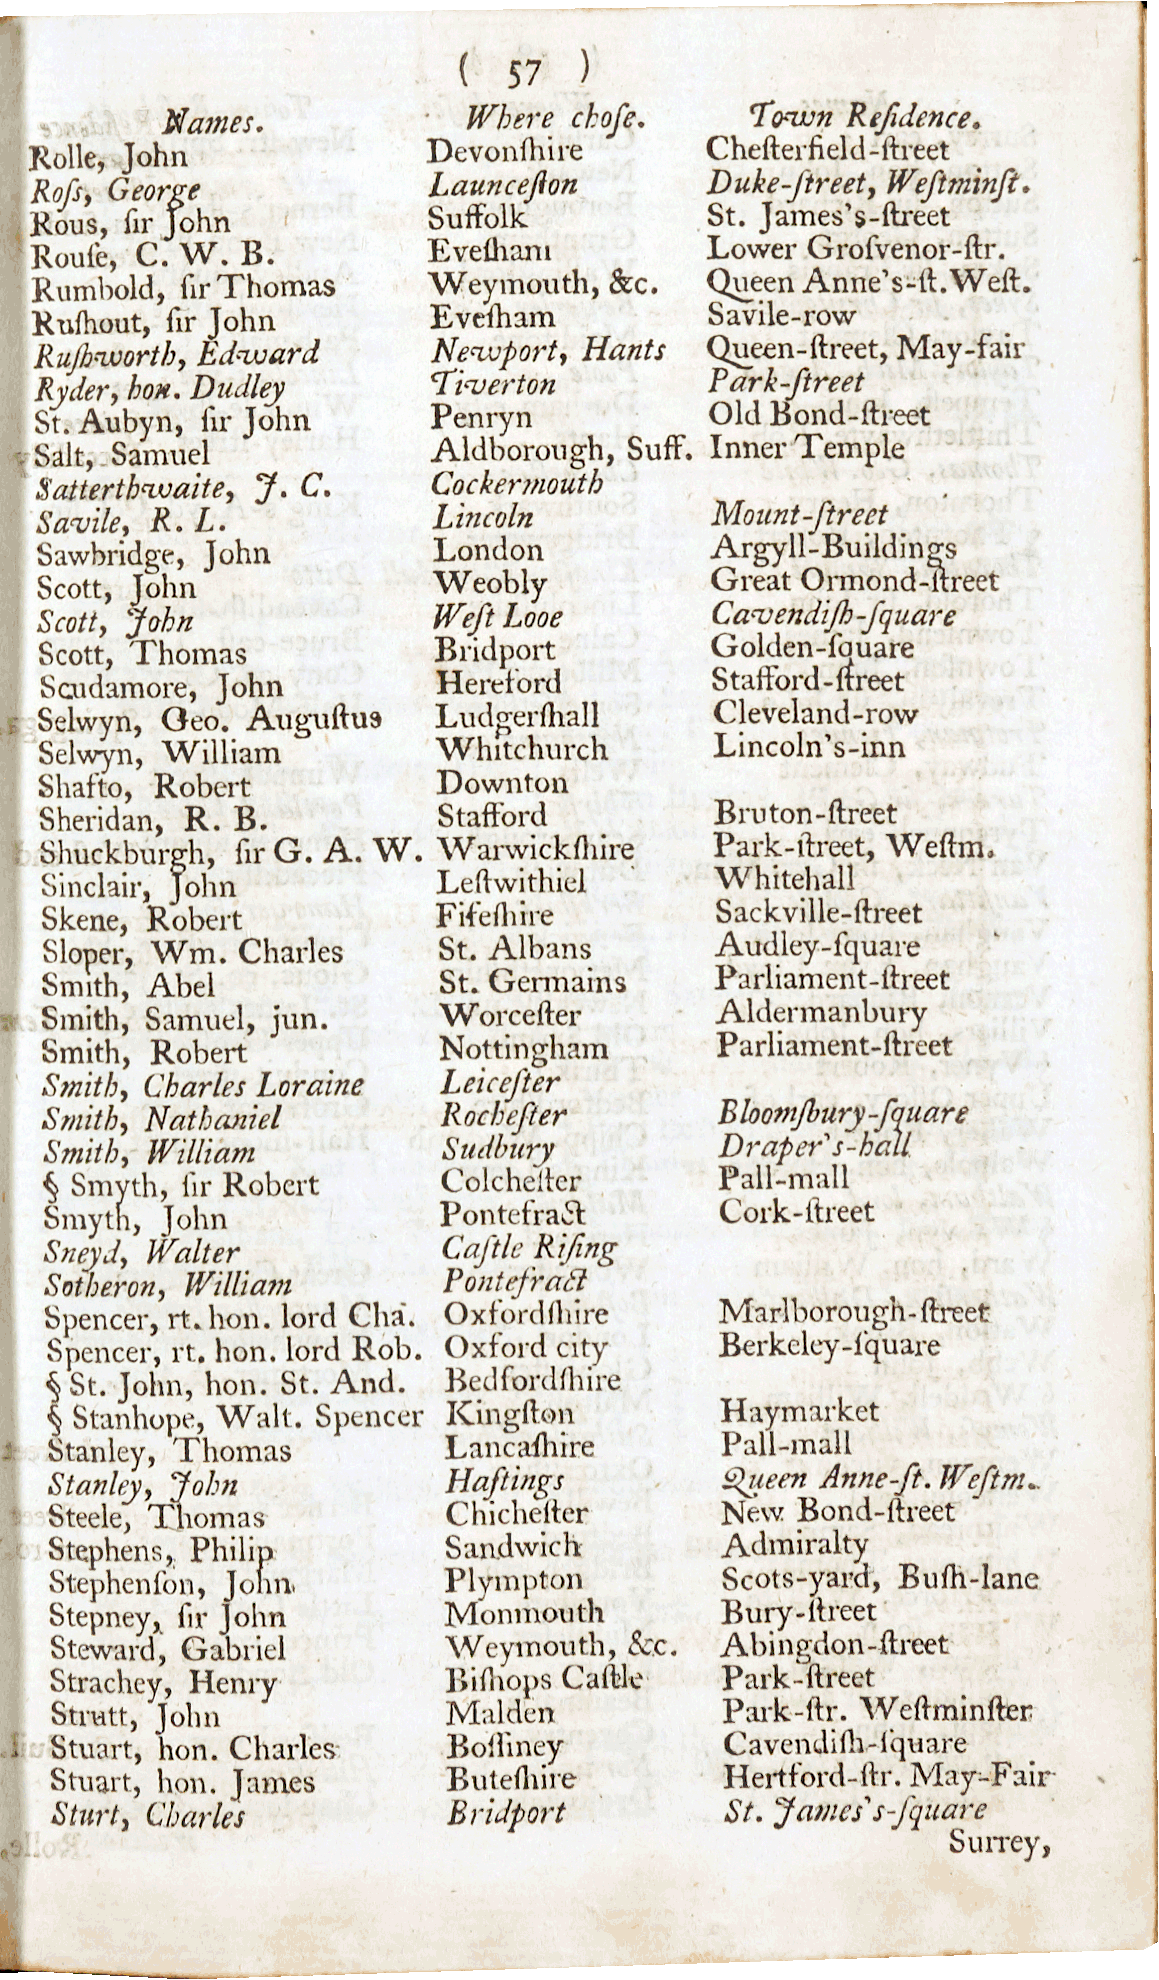 ( 57 )
Names. Where choſe. Town Reſidence.
Rolle, John Devonſhire Cheſterfield-ſtreet
Roſs, George Launceſton Duke-ſtreet, Weſtminſt.
Rous, ſir John Suffolk St. James's-ſtreet
Rouſe, C. W. B. Eveſham Lower Groſvenor-ſtr.
Rumbold, ſir Thomas Weymouth, &c. Queen Anne's-ſt. Weſt.
Ruſhout, ſir John Eveſham Savile-row
Ruſhworth, Edward Newport, Hants Queen-ſtreet, May-fair
Ryder, hon. Dudley Tiverton Park-ſtreet
St. Aubyn, ſir John Penryn Old Bond-ſtreet
Salt, Samuel Aldborough, Suff. Inner Temple
Satterthwaite, J. C. Cockermouth
Savile, R. L. Lincoln Mount-ſtreet
Sawbridge, John London Argyll-Buildings
Scott, John Weobly Great Ormond-ſtreet
Scott, John Weſt Looe Cavendiſh-ſquare
Scott, Thomas Bridport Golden-ſquare
Scudamore, John Hereford Stafford-ſtreet
Selwyn, Geo. Auguſtus Ludgerſhall Cleveland-row
Selwyn, William Whitchurch Lincoln's-inn
Shafto, Robert Downton
Sheridan, R. B. Stafford Bruton-ſtreet
Shuckburgh, ſir G. A. W. Warwickſhire Park-ſtreet, Weſtm.
Sinclair, John Leſtwithiel Whitehall
Skene, Robert Fifeſhire Sackville-ſtreet
Sloper, Wm. Charles St. Albans Audley-ſquare
Smith, Abel St. Germains Parliament-ſtreet
Smith, Samuel, jun. Worceſter Aldermanbury
Smith, Robert Nottingham Parliament-ſtreet
Smith, Charles Loraine Leiceſter
Smith, Nathaniel Rocheſter Bloomſbury-ſquare
Smith, William Sudbury Draper's-hall
§ Smyth, ſir Robert Colcheſter Pall-mall
Smyth, John Pontefract Cork-ſtreet
Sneyd, Walter Caſtle Riſing
Sotheron, William Pontefract
Spencer, rt. hon. lord Cha. Oxfordſhire Marlborough-ſtreet
Spencer, rt. hon. lord Rob. Oxford city Berkeley-ſquare
§ St. John, hon. St. And. Bedfordſhire
§ Stanhope, Walt. Spencer Kingſton Haymarket
Stanley, Thomas Lancaſhire Pall-mall
Stanley, John Haſtings Queen Anne-ſt. Weſtm.
Steele, Thomas Chicheſter New Bond-ſtreet
Stephens, Philip Sandwich Admiralty
Stephenſon, John Plympton Scots-yard, Buſh-lane
Stepney, ſir John Monmouth Bury-ſtreet
Steward, Gabriel Weymouth, &c. Abingdon-ſtreet
Strachey, Henry Biſhops Caſtle Park-ſtreet
Strutt, John Malden Park-ſtr. Weſtminſter
Stuart, hon. Charles Boſſiney Cavendiſh-ſquare
Stuart, hon. James Buteſhire Hertford-ſtr. May-Fair
Sturt, Charles Bridport St. James's-ſquare
Surrey,